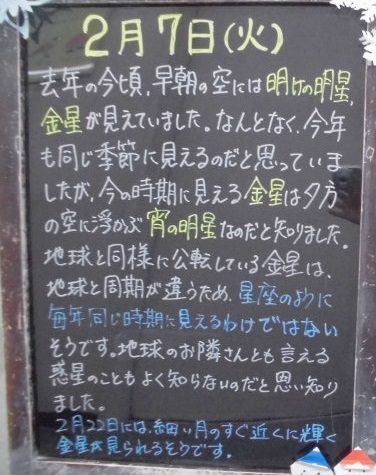 2月7日(火)
去年の今頃,早朝の空には明けの明星,
金星が見えていました。なんとなく,今年
も同じ季節に見えるのだと思っていま
したが,今の時期に見える金星は夕方
の空に浮かぶ宵の明星なのだと知りました。
地球と同様に公転している金星は、
地球と周期が違うため、星座のように
毎年同じ時期に見えるわけではない
そうです。地球のお隣さんとも言える
惑星のこともよく知らないのだと思い知り
ました。
2月22日には、細い月のすぐ近くに輝く
金星が見られるそうです。